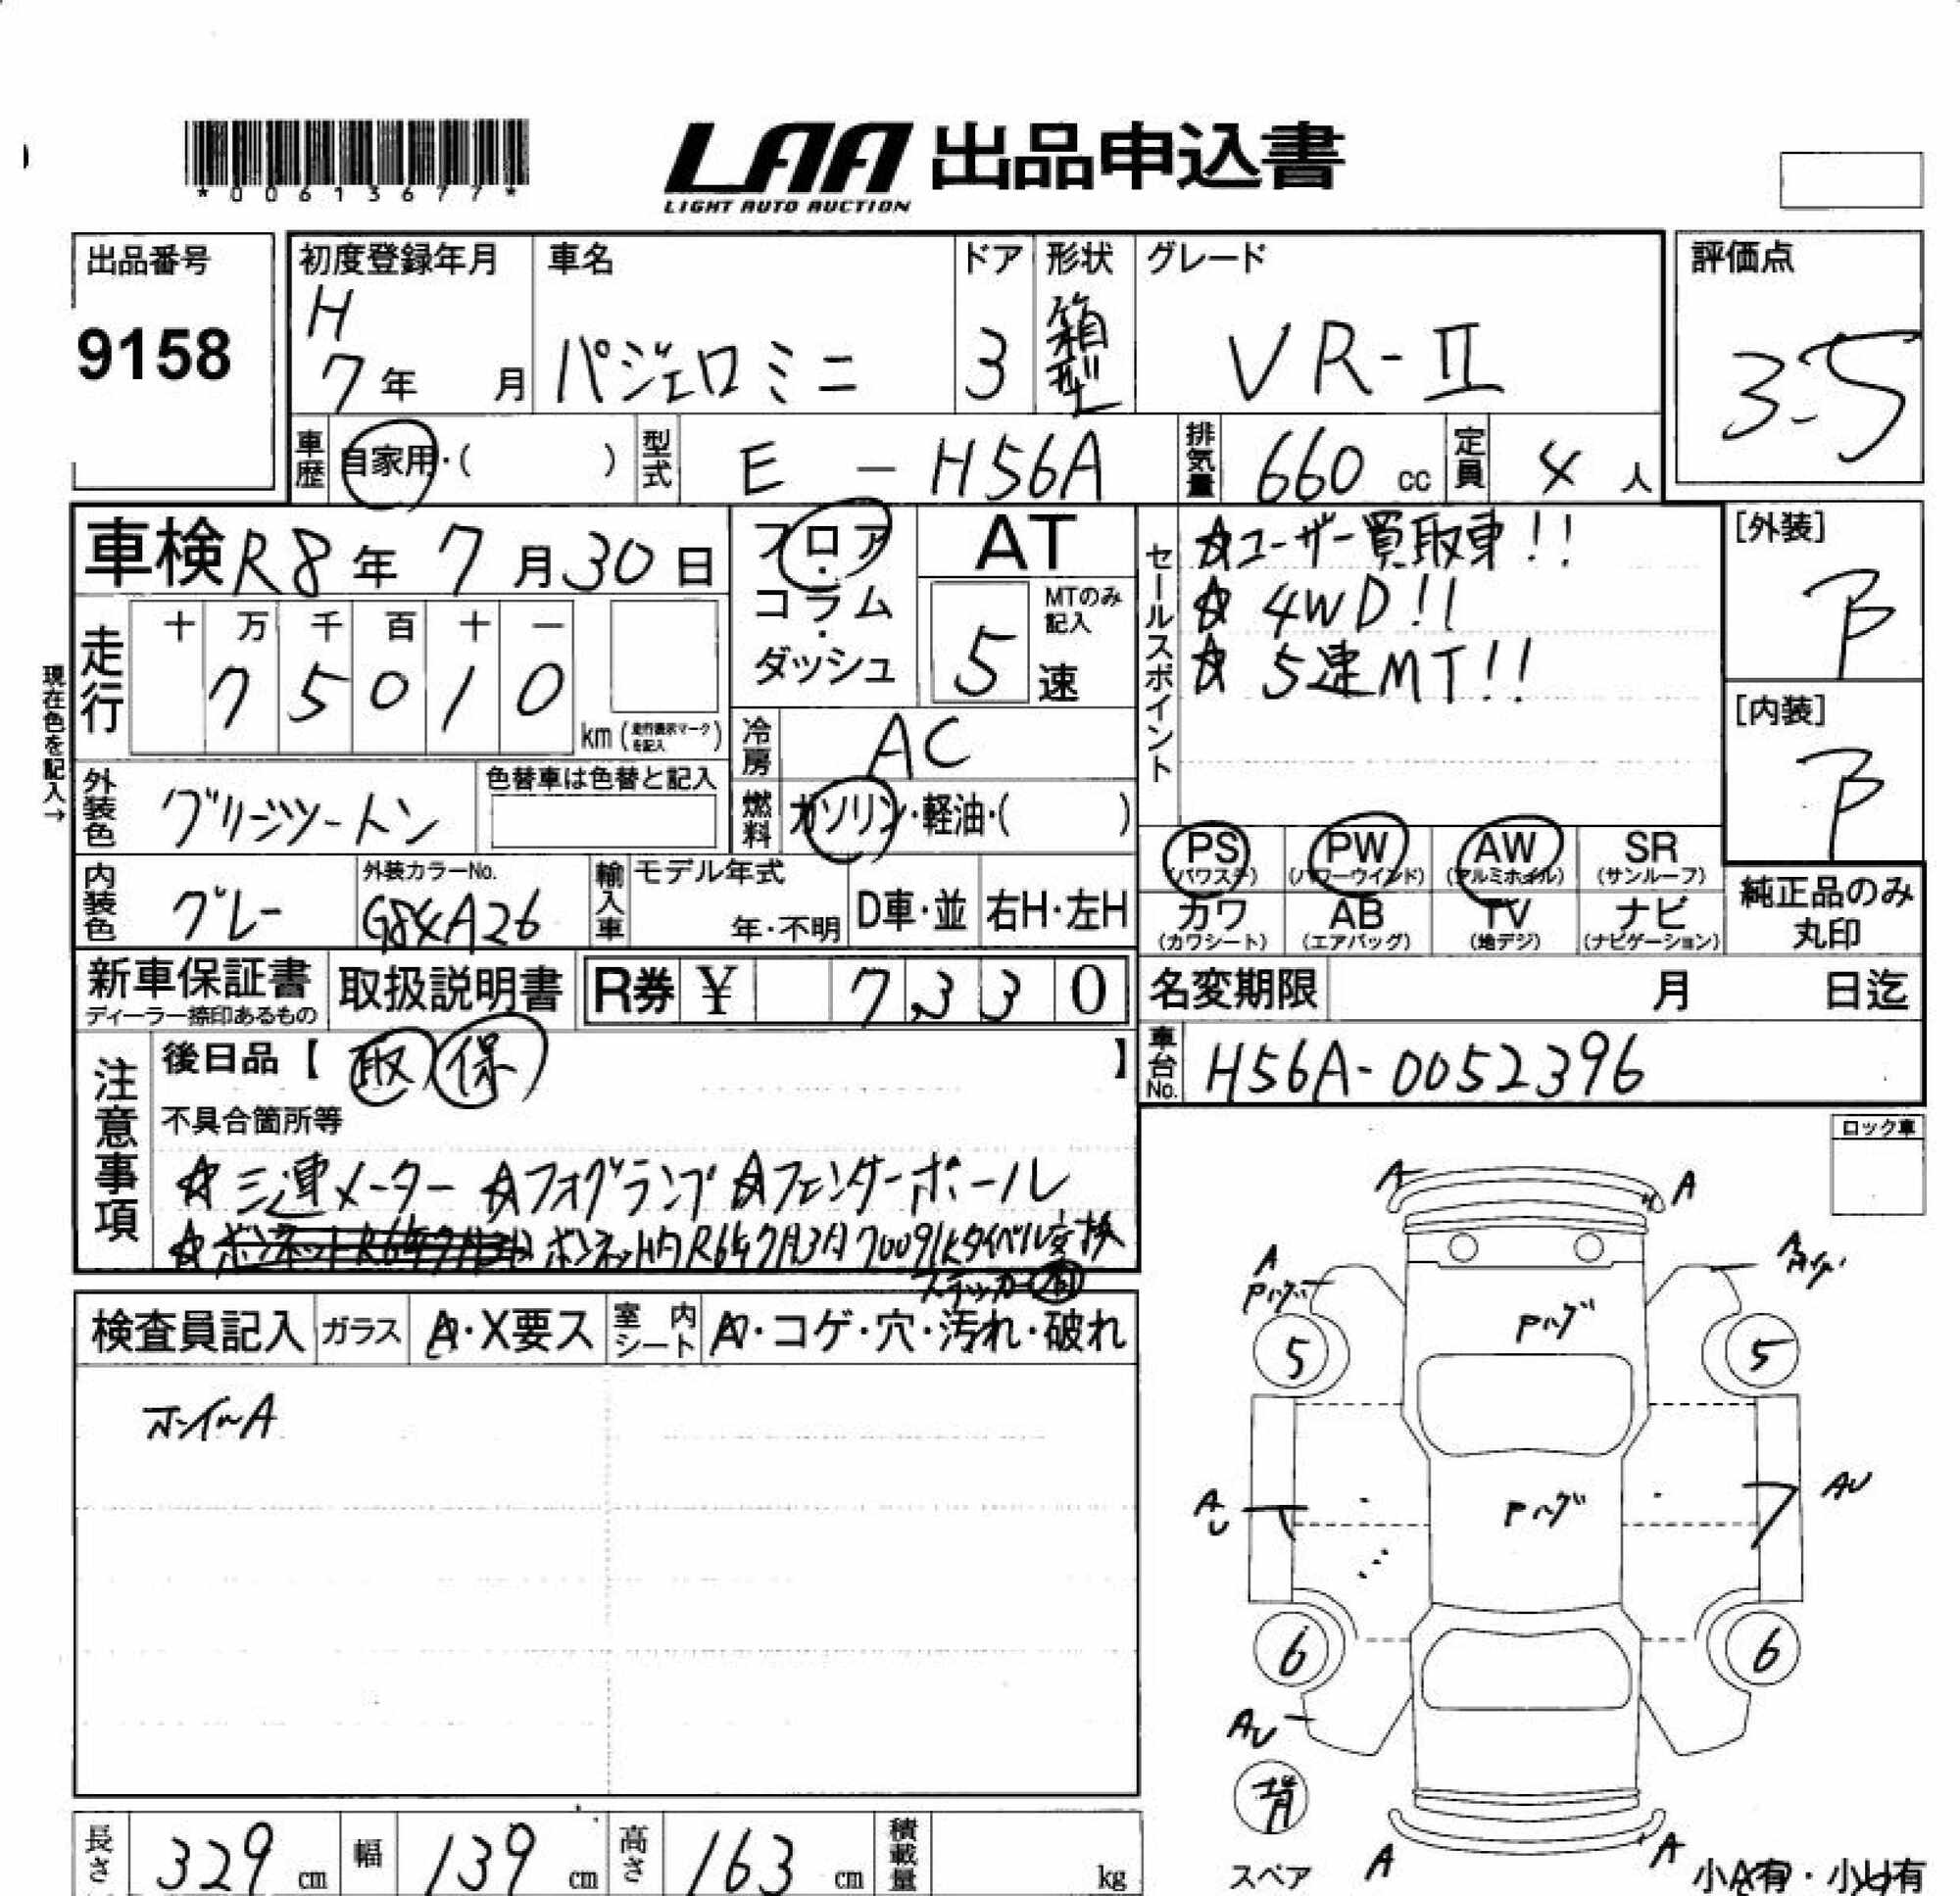 *00613677*
LAA 出品申込書
LIGHT AUTO AUCTION
出品番号
9158
初度登録年月
H
7年 月
車名
パジェロミニ
ドア
3
形状
箱型
グレード
VR-II
評価点
3.5
車歴 自家用・( )
型式 E - H56A
排気量 660 cc
定員 4 人
車検 R8年 7月30日
走行 十 万 千 百 十 一
7 5 0 1 0
km (走行表示マークを記入)
現在色を記入→
フロア・コラム・ダッシュ
AT
MTのみ記入
5 速
冷房 AC
燃料 ガソリン・軽油・( )
セールスポイント
☆ユーザー買取車!!
☆ 4WD!!
☆ 5速MT!!
[外装]
B
[内装]
B
外装色 グリーンツートン
色替車は色替と記入
内装色 グレー
外装カラーNo.
G84A26
輸入車 モデル年式
年・不明
D車・並 右H・左H
PS (パワステ)
PW (パワーウインド)
AW (アルミホイル)
SR (サンルーフ)
カワ (カワシート)
AB (エアバッグ)
TV (地デジ)
ナビ (ナビゲーション)
純正品のみ
丸印
新車保証書
ディーラー捺印あるもの
取扱説明書
R券 ¥ 7,330
名変期限 月 日迄
車台No. H56A-0052396
注意事項
後日品【 取 保 】
不具合箇所等
☆ 三連メーター ☆フォグランプ ☆フェンダーポール
☆ ボンネット内R6年7月3日70091kタイベル交換
ステッカー有
ロック車
検査員記入 ガラス A・X要ス
室内シート A・コゲ・穴・汚れ・破れ
ホイールA
A A
A
Pハゲ
A
Pハゲ
5 5
Pハゲ
AU AU
6 6
AU
背
スペア
A A
小A有・小U有
長さ 329 cm
幅 139 cm
高さ 163 cm
積載量 kg